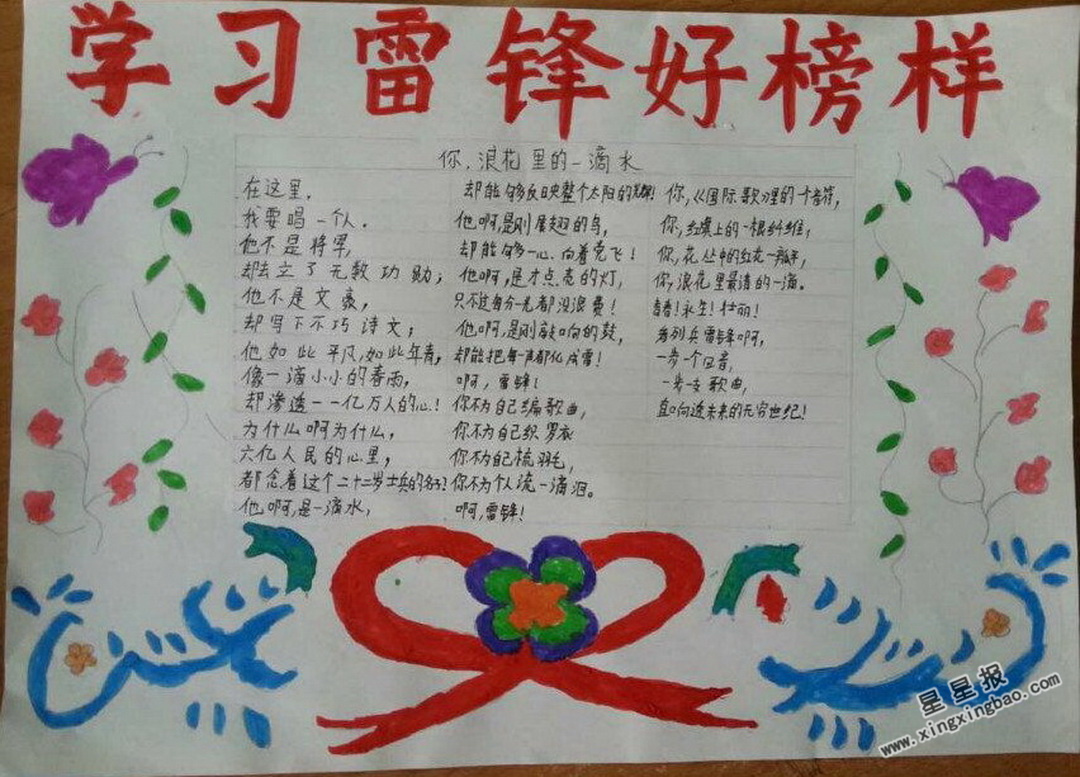 学习雷锋好榜样
你,浪花里的一滴水
在这里.
我要唱一个人.
他不是将军,
却去立了无数功勋;
他不是文豪,
却写下不巧诗文;
他如此平凡,如此年青,
像一滴小小的春雨,
却渗透一一亿万人的心!
为什么啊为什么,
六亿人民的心里,
都念着这个二十二岁士兵的名字!
他啊,是一滴水,
却能够反映整个太阳的光辉!
他啊,是刚展翅的鸟,
却能够一心向着党飞!
他啊,是才点亮的灯,
只不过每分光都没浪费!
他啊,是刚敲响的鼓,
却能把每一声都化成雷!
啊,雷锋!
你不为自己编歌曲,
你不为自己织罗衣
你不为自己梳羽毛,
你不为个人流一滴泪。
啊,雷锋!
你,《国际歌》里的一个音符,
你,红旗上的一根纤维,
你,花丛中的红花一瓣,
你,浪花里最清的一滴。
青春!永生!壮丽!
列兵雷锋啊,
一步一个回音,
一步一支歌曲,
直响透未来的无穷世纪!
星星报
www.xingxingbao.com